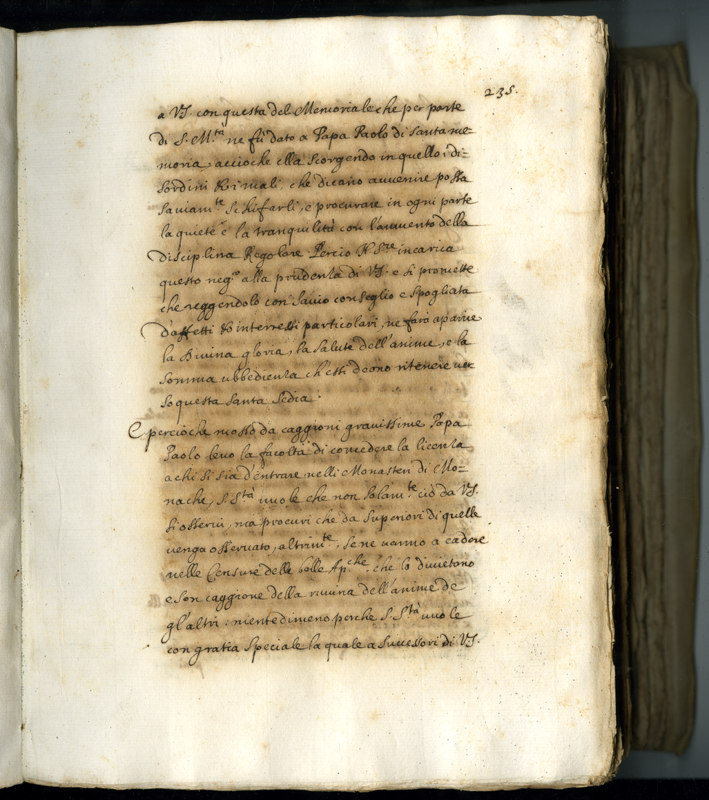 235.
a VS. con questa del Memoriale che per parte
di S. M.ta ne fù dato a Papa Paolo di santa me-
moria, accioche ella scorgendo in quello i di-
sordini & i mali, che di
saviam.te schifarli, e procurare in ogni parte
la quiete e la tranquilità con l'aumento della
Disciplina Regolare Percio N. S.re incarica
questo neg.o alla prudenza di VS. e si promette
che reggendolo con savio conseglio e spogliata
d'affetti & interessi particolari, ne farà aparire
la Divina gloria, la salute dell'anime, e la
somma ubbedienza ch'essi deono ritenere ver
so questa Santa Sedia.
E percioche mosso da caggioni gravissime Papa
Paolo levo la facoltà di concedere la licenza
a chi si sia d'entrare nelli Monasteri di Mo-
nache, S. S.tà vuole che non solam.te ciò da VS.
si osservi, ma procuri che da superiori di quelle
venga osservato, altrim.te, se ne vanno a cadere
nelle Censure delle bolle Ap.che che lo divietano
e son caggione della rovina dell'anime de
gl'altri: nientedimeno perche S. S.tà vuole
con gratia speciale la quale a successori di VS.